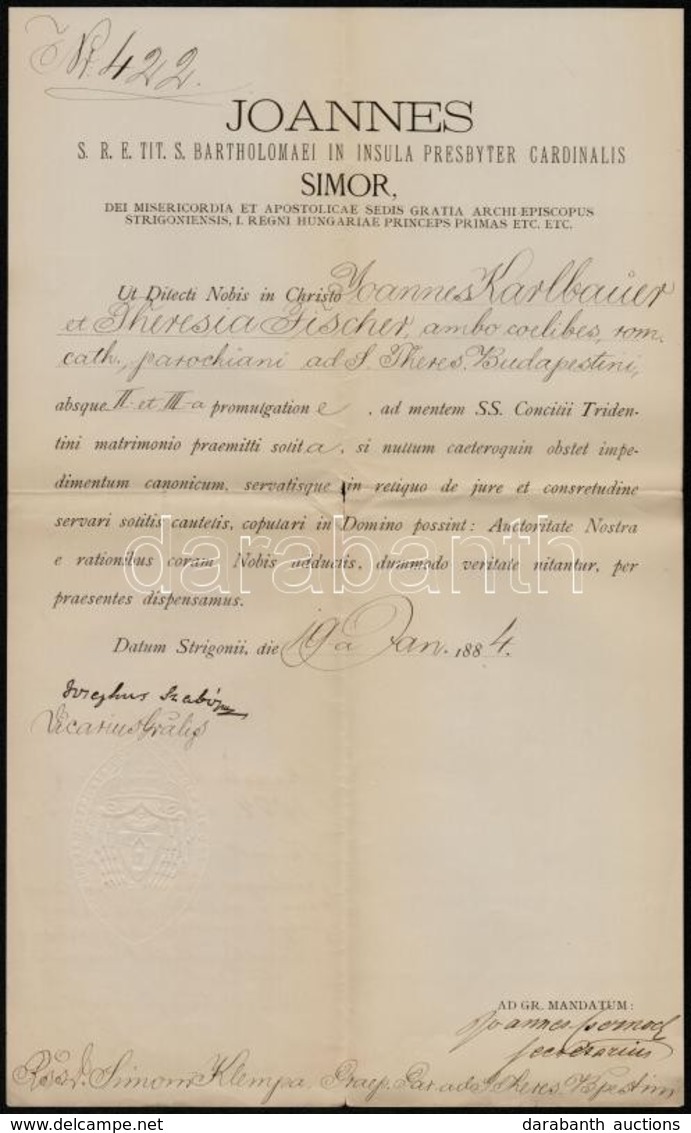 Nr. 422.
JOANNES
S. R. E. TIT. S. BARTHOLOMAEI IN INSULA PRESBYTER CARDINALIS
SIMOR,
DEI MISERICORDIA ET APOSTOLICAE SEDIS GRATIA ARCHI-EPISCOPUS
STRIGONIENSIS, I. REGNI HUNGARIAE PRINCEPS PRIMAS ETC. ETC.
Ut Dilecti Nobis in Christo Joannes Karlbauer
et Theresia Fischer, ambo coelibes, rom.
cath., parochiani ad S. Theres. Budapestini,
absque II. et III-a promulgatione, ad mentem SS. Concilii Triden-
tini matrimonio praemitti solita, si nullum caeteroquin obstet impe-
dimentum canonicum, servatisque in reliquo de jure et consvetudine
servari solitis cautelis, copulari in Domino possint: Auctoritate Nostra
e rationibus coram Nobis adductis, dummodo veritate nitantur, per
praesentes dispensamus.
darabanth
Datum Strigonii, die 19a Jan. 1884.
Josephus Szabó
Vicarius Gralis
AD GR. MANDATUM:
Joannes
secretarius
Simoni Klempa, Praep. Par. ad S. Theres. Bpestini
darabanth auctions